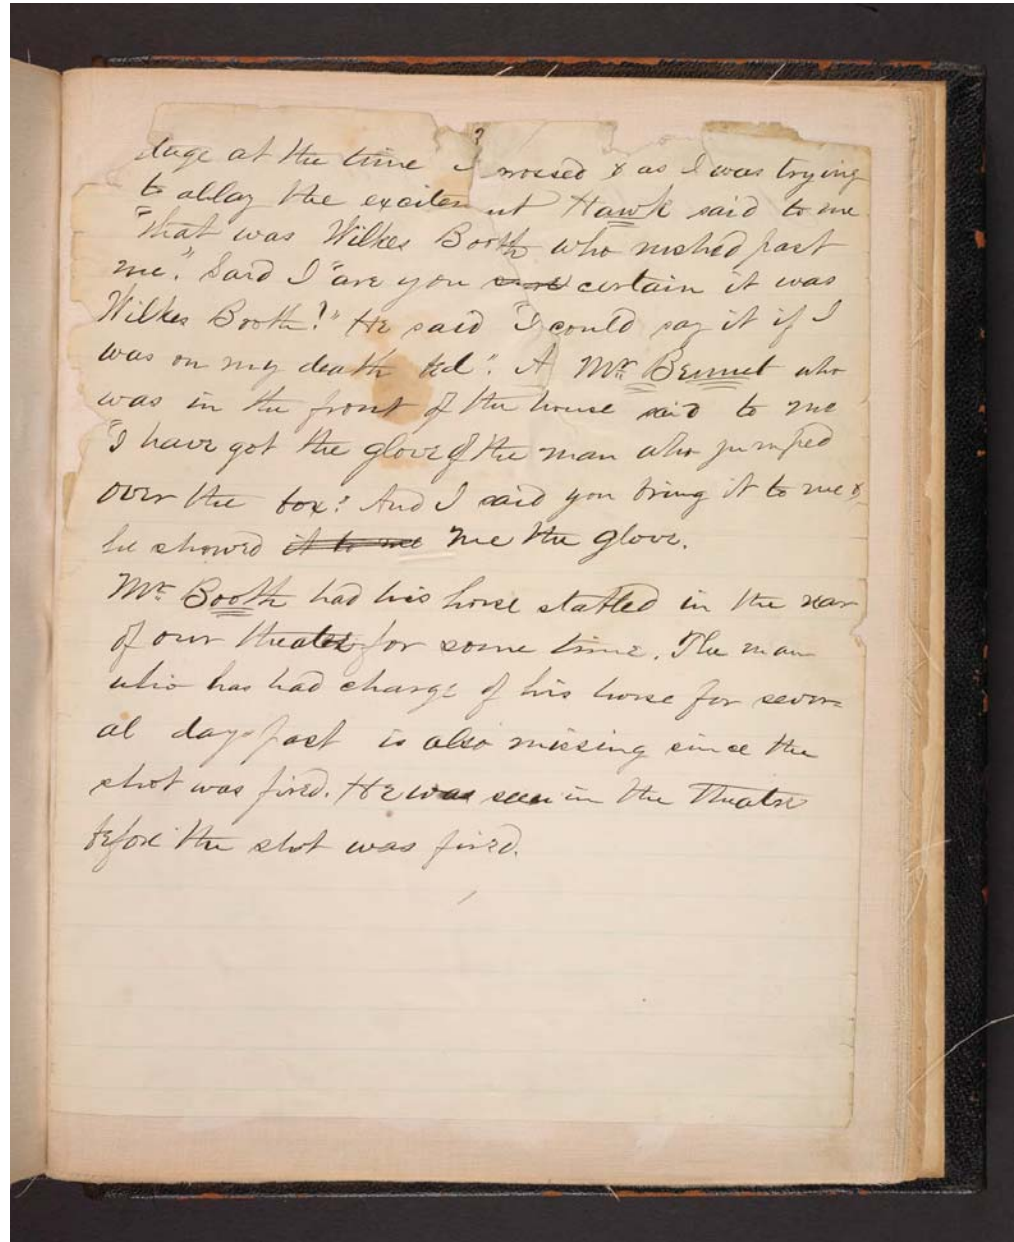 at the time I crossed & as I was trying
to allay the excitem nt Hawk said to me
"that was Wilkes Booth who rushed past
me." Said I "are you sure certain it was
Wilkes Booth?" He said "I could say it if I
was on my death bed". A Mr. Bennet who
was in the front of the house said to me
"I have got the glove of the man who jumped
over the box". And I said you bring it to me &
he showed it to me me the glove.
Mr. Booth had his horse stabled in the rear
of our theatre for some time. The man
who has had charge of his horse for sever=
al days past is also missing since the
shot was fired. He was seen in the Theatre
before the shot was fired.